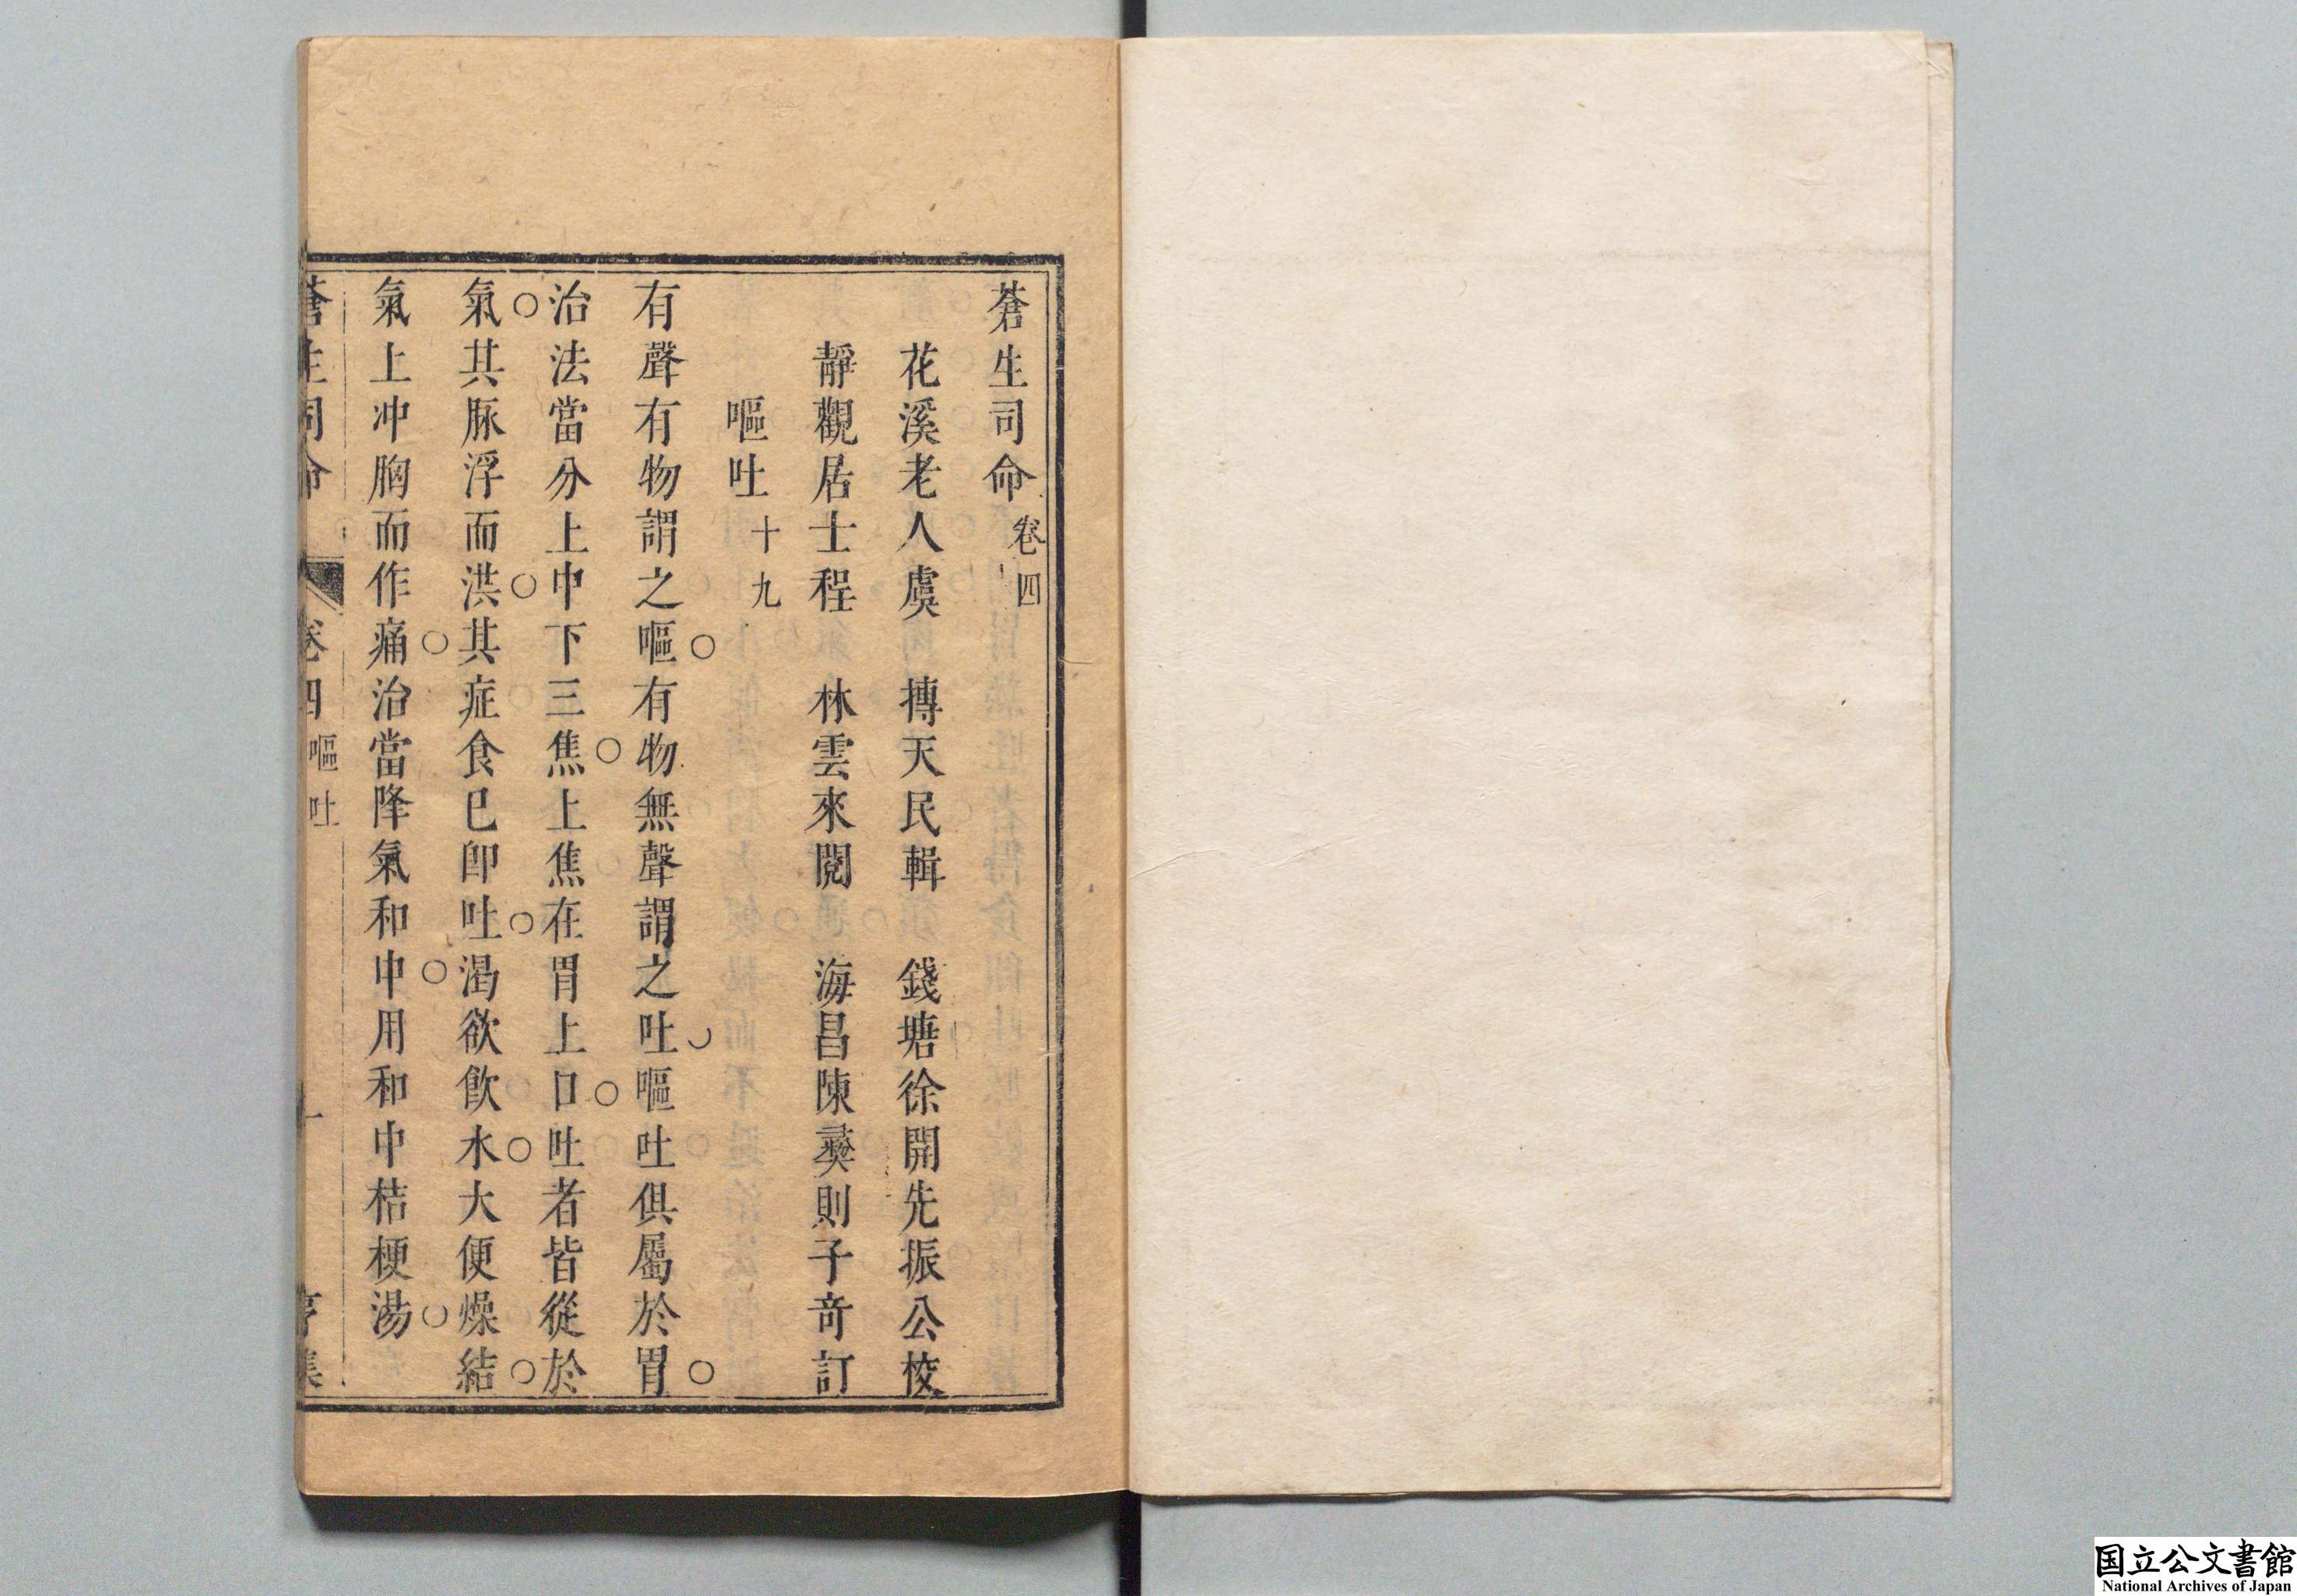 蒼生司命卷四
花溪老人虞 摶天民輯 錢塘徐開先振公校
靜觀居士程 林雲來閱 海昌陳彝則子奇訂
嘔吐十九
有聲有物謂之嘔○有物無聲謂之吐○嘔吐俱屬於胃○
治法當分上中下三焦○上焦在胃上口○吐者皆從於
氣○其脉浮而洪○其症食已卽吐○渴欲飮水○大便燥結○
氣上冲胸而作痛○治當降氣和中○用和中桔梗湯○
蒼生司命 卷四 嘔吐 一 亨集
国立公文書館
National Archives of Japan